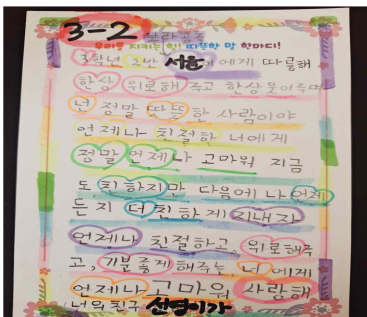 3-2
우리를 지키는 힘! 따뜻한 말 한마디!
3학년 2반 서윤이에게 따뜻해
한상 위로해 주고 한상웃어주며
넌 정말 따뜻한 사람이야
언제나 친절한 너에게
정말 언제나 고마워 지금
도 친하지만 다음에 나 언제
든지 더 친하게 지내자
언제나 친절하고, 위로해주
고, 기분좋게 해주는 너에게
언제나 고마워 사랑해
너의 친구